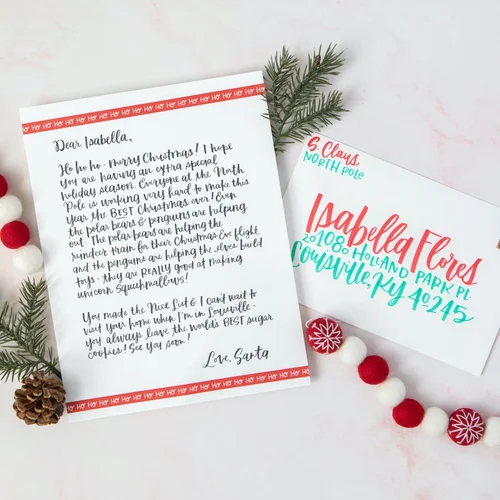 HO HO HO HO HO HO HO HO HO HO HO HO HO HO HO
Dear Isabella,
Ho ho ho - Merry Christmas! I hope
you are having an extra special
holiday season. Everyone at the North
Pole is working very hard to make this
year the BEST Christmas ever! Even
the polar bears & penguins are helping
out. The polar bears are helping the
reindeer train for their Christmas Eve flight,
and the penguins are helping the elves build
toys - they are REALLY good at making
unicorn Squishmallows!
You made the Nice List & I can't wait to
visit your home when I'm in Louisville -
you always leave the world's BEST sugar
cookies! See you soon!
Love, Santa
HO HO HO HO HO HO HO HO HO HO HO HO HO HO HO
S. Claus
NORTH POLE
Isabella Flores
20108 HOLLAND PARK PL
Louisville, KY 40245